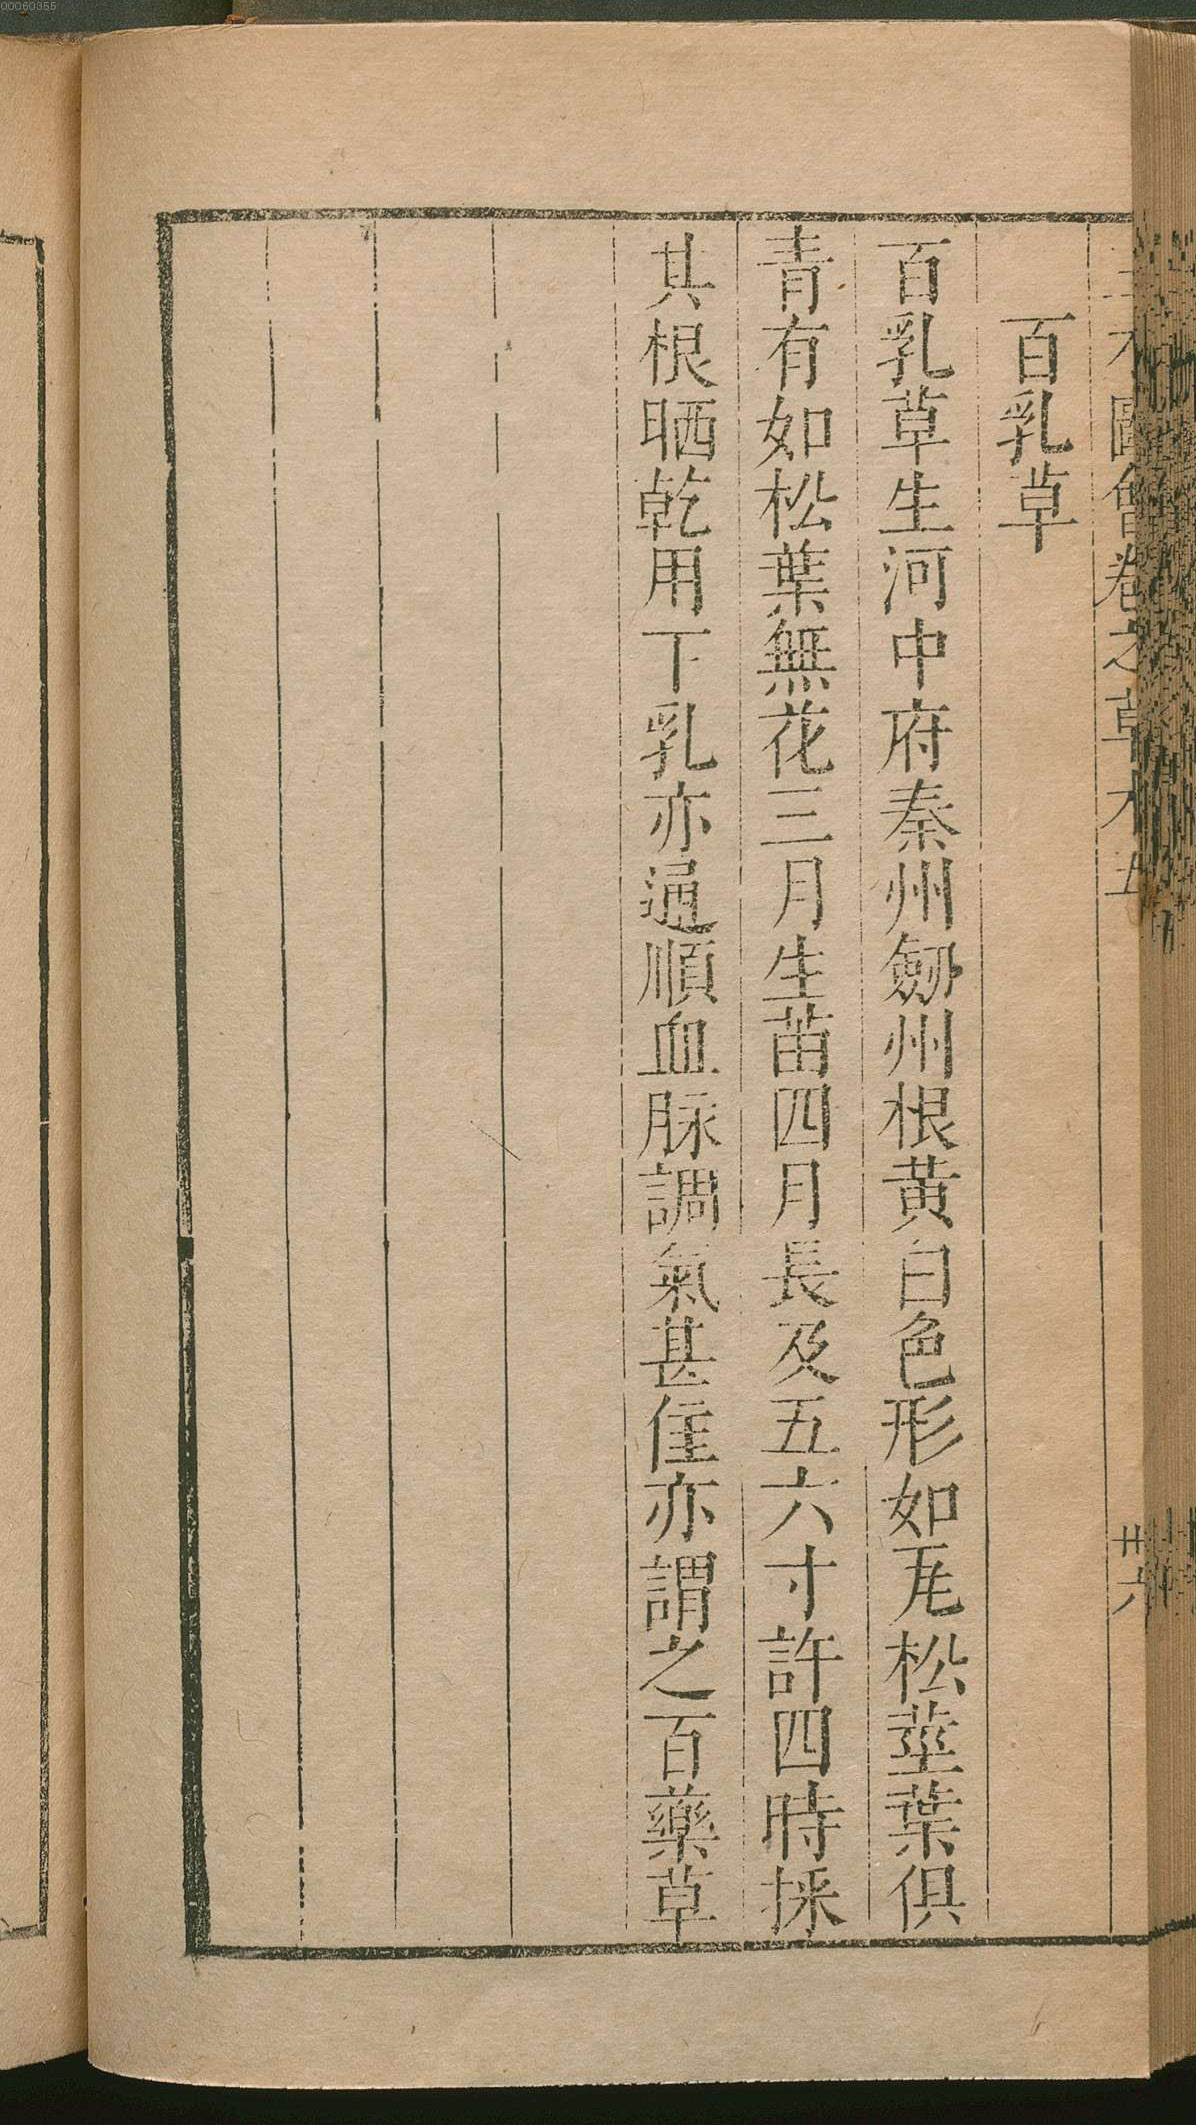 00060355
三才圖會卷之草木五
卅六
百乳草
百乳草生河中府秦州劒州根黃白色形如瓦松莖葉俱
青有如松葉無花三月生苗四月長及五六寸許四時採
其根晒乾用下乳亦通順血脉調氣甚佳亦謂之百藥草